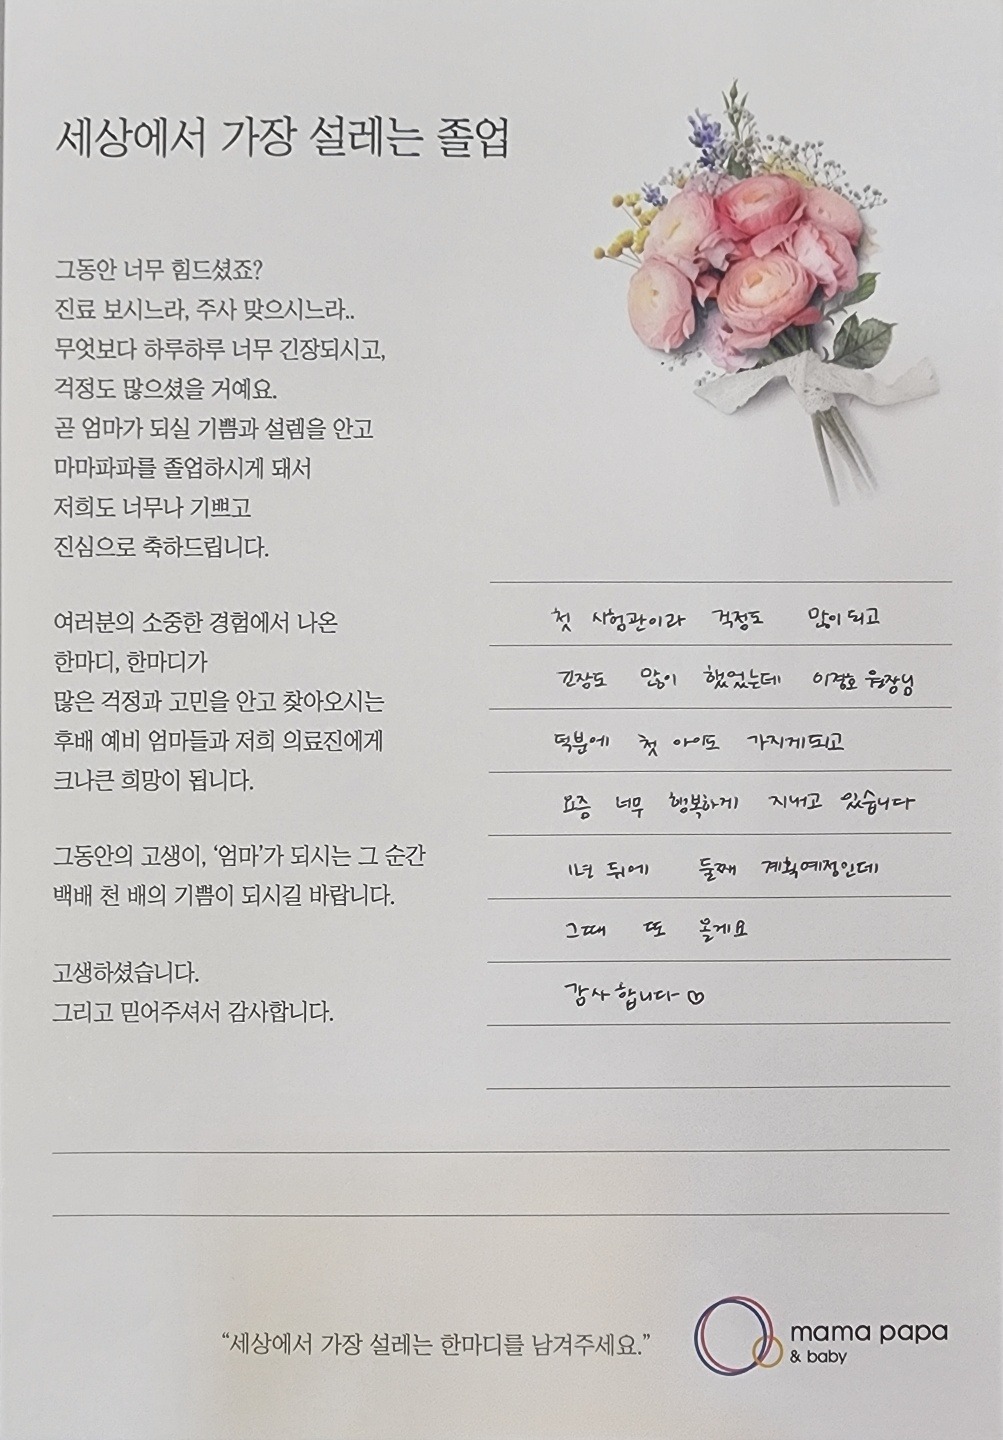 세상에서 가장 설레는 졸업
그동안 너무 힘드셨죠?
진료 보시느라, 주사 맞으시느라..
무엇보다 하루하루 너무 긴장되시고,
걱정도 많으셨을 거예요.
곧 엄마가 되실 기쁨과 설렘을 안고
마마파파를 졸업하시게 돼서
저희도 너무나 기쁘고
진심으로 축하드립니다.
여러분의 소중한 경험에서 나온
한마디, 한마디가
많은 걱정과 고민을 안고 찾아오시는
후배 예비 엄마들과 저희 의료진에게
크나큰 희망이 됩니다.
그동안의 고생이, ‘엄마’가 되시는 그 순간
백배 천 배의 기쁨이 되시길 바랍니다.
고생하셨습니다.
그리고 믿어주셔서 감사합니다.
첫 시험관이라 걱정도 많이 되고
긴장도 많이 했었는데 이경호 원장님
덕분에 첫 아이도 가지게되고
요즘 너무 행복하게 지내고 있습니다
1년 뒤에 둘째 계획예정인데
그때 또 올게요
감사합니다♡
“세상에서 가장 설레는 한마디를 남겨주세요.”
mama papa
& baby